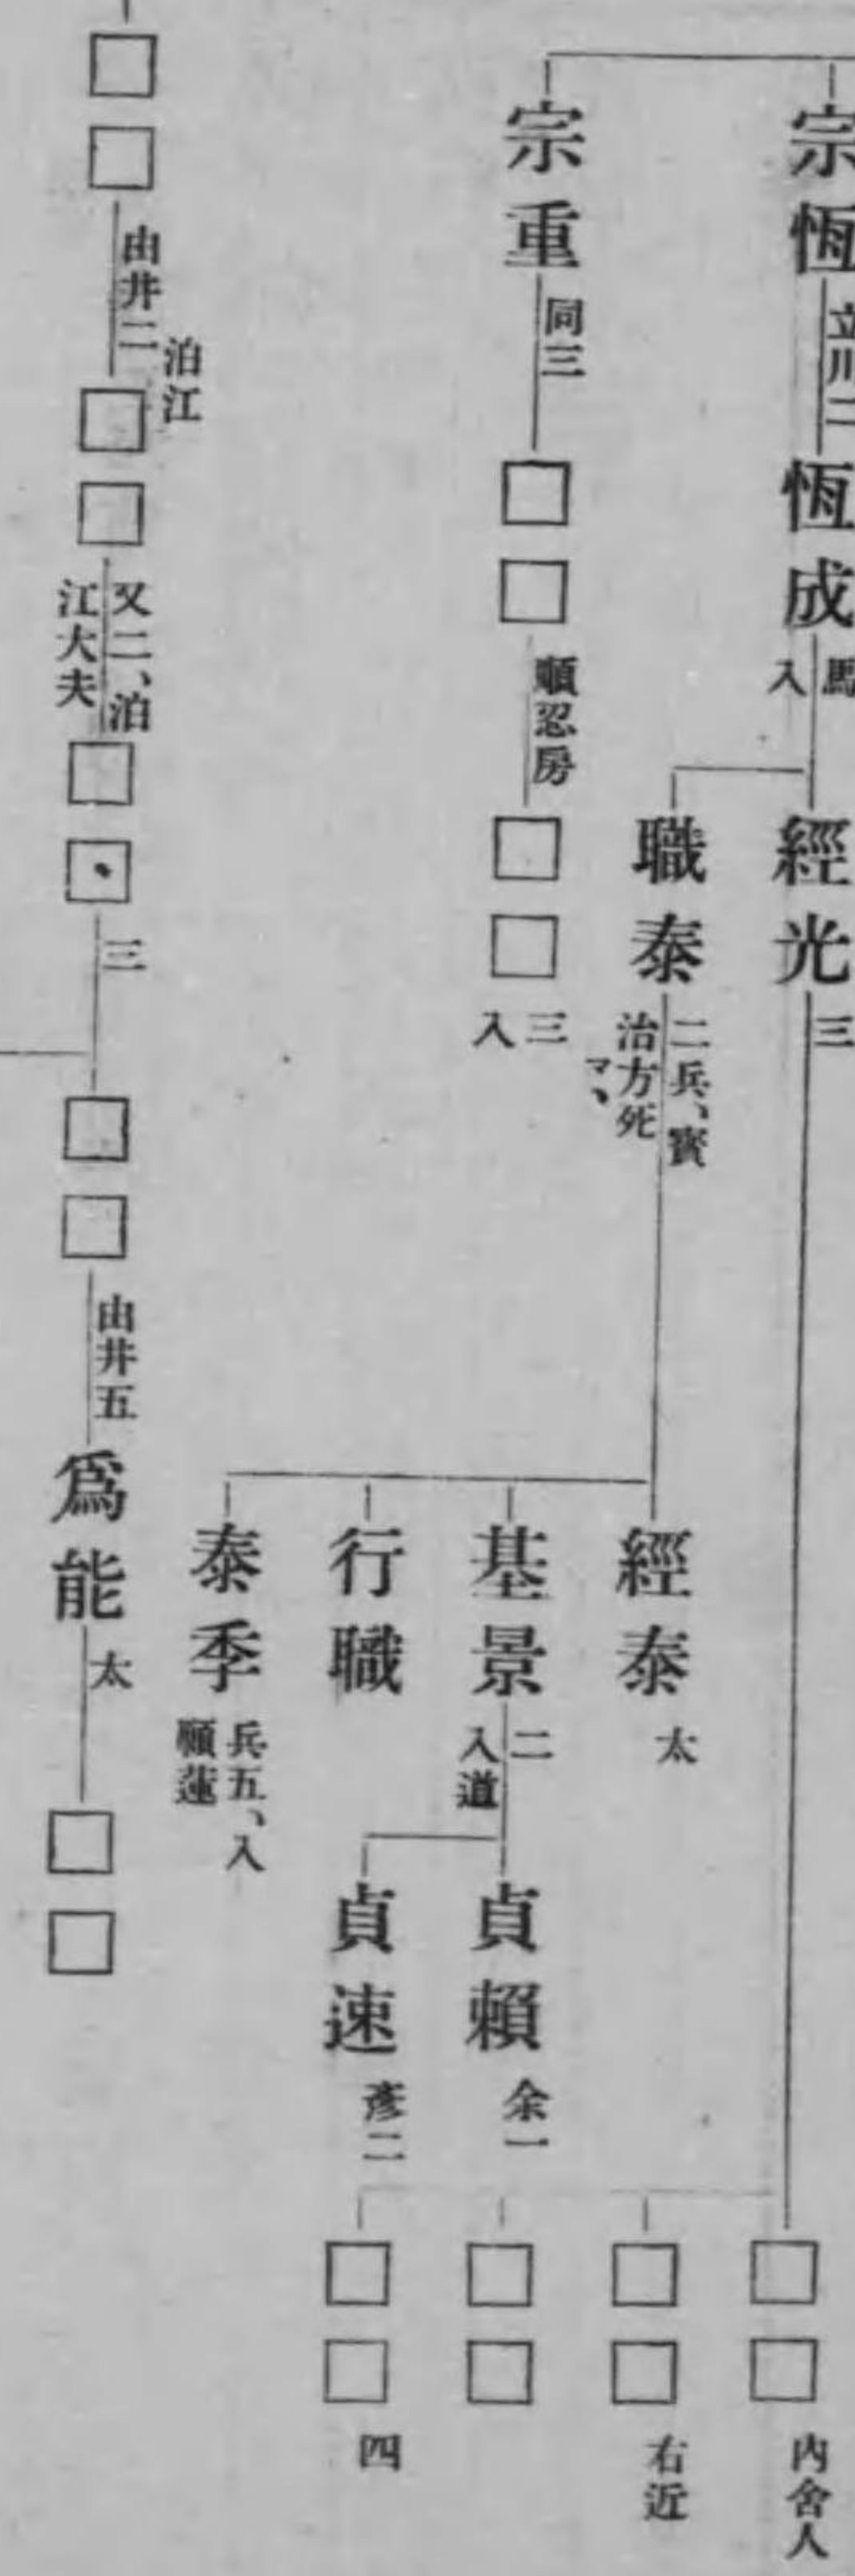 宗恆
立川二
恆成
馬
入
經光
三
□□
內舍人
□□
右近
□□
□□
四
職泰
二兵、實
治方死
マヽ
經泰
太
基景
二
入道
貞賴
余一
貞速
彥二
行職
泰季
兵五、入
願蓮
宗重
同三
□□
順忍房
□□
三
入
□□
由井二
泊江
□□
又二、泊
江大夫
□□
三
□□
由井五
爲能
太
□□